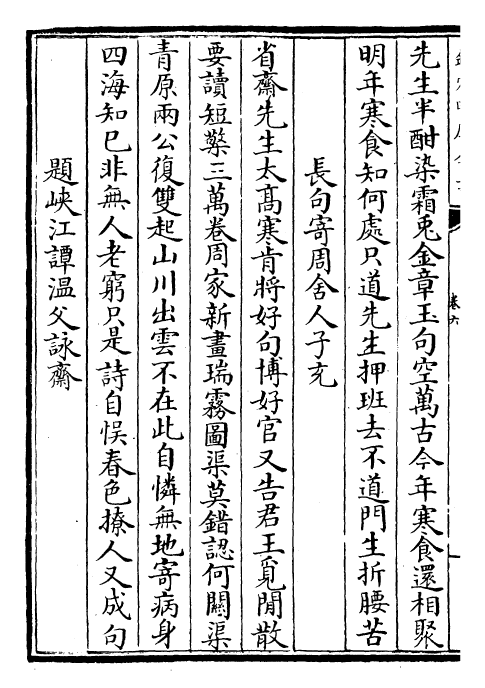 先生半酣染霜兎金章玉句空萬古今年寒食還相聚
明年寒食知何處只道先生押班去不道門生折腰苦
長句寄周舍人子充
省齋先生太高寒肯將好句博好官又告君王覓閒散
要讀短檠三萬卷周家新畫瑞霧圖渠莫錯認何闗渠
青原兩公復雙起山川出雲不在此自憐無地寄病身
四海知已非無人老窮只是詩自悮春色撩人又成句
題峽江譚温父詠齋
卷六